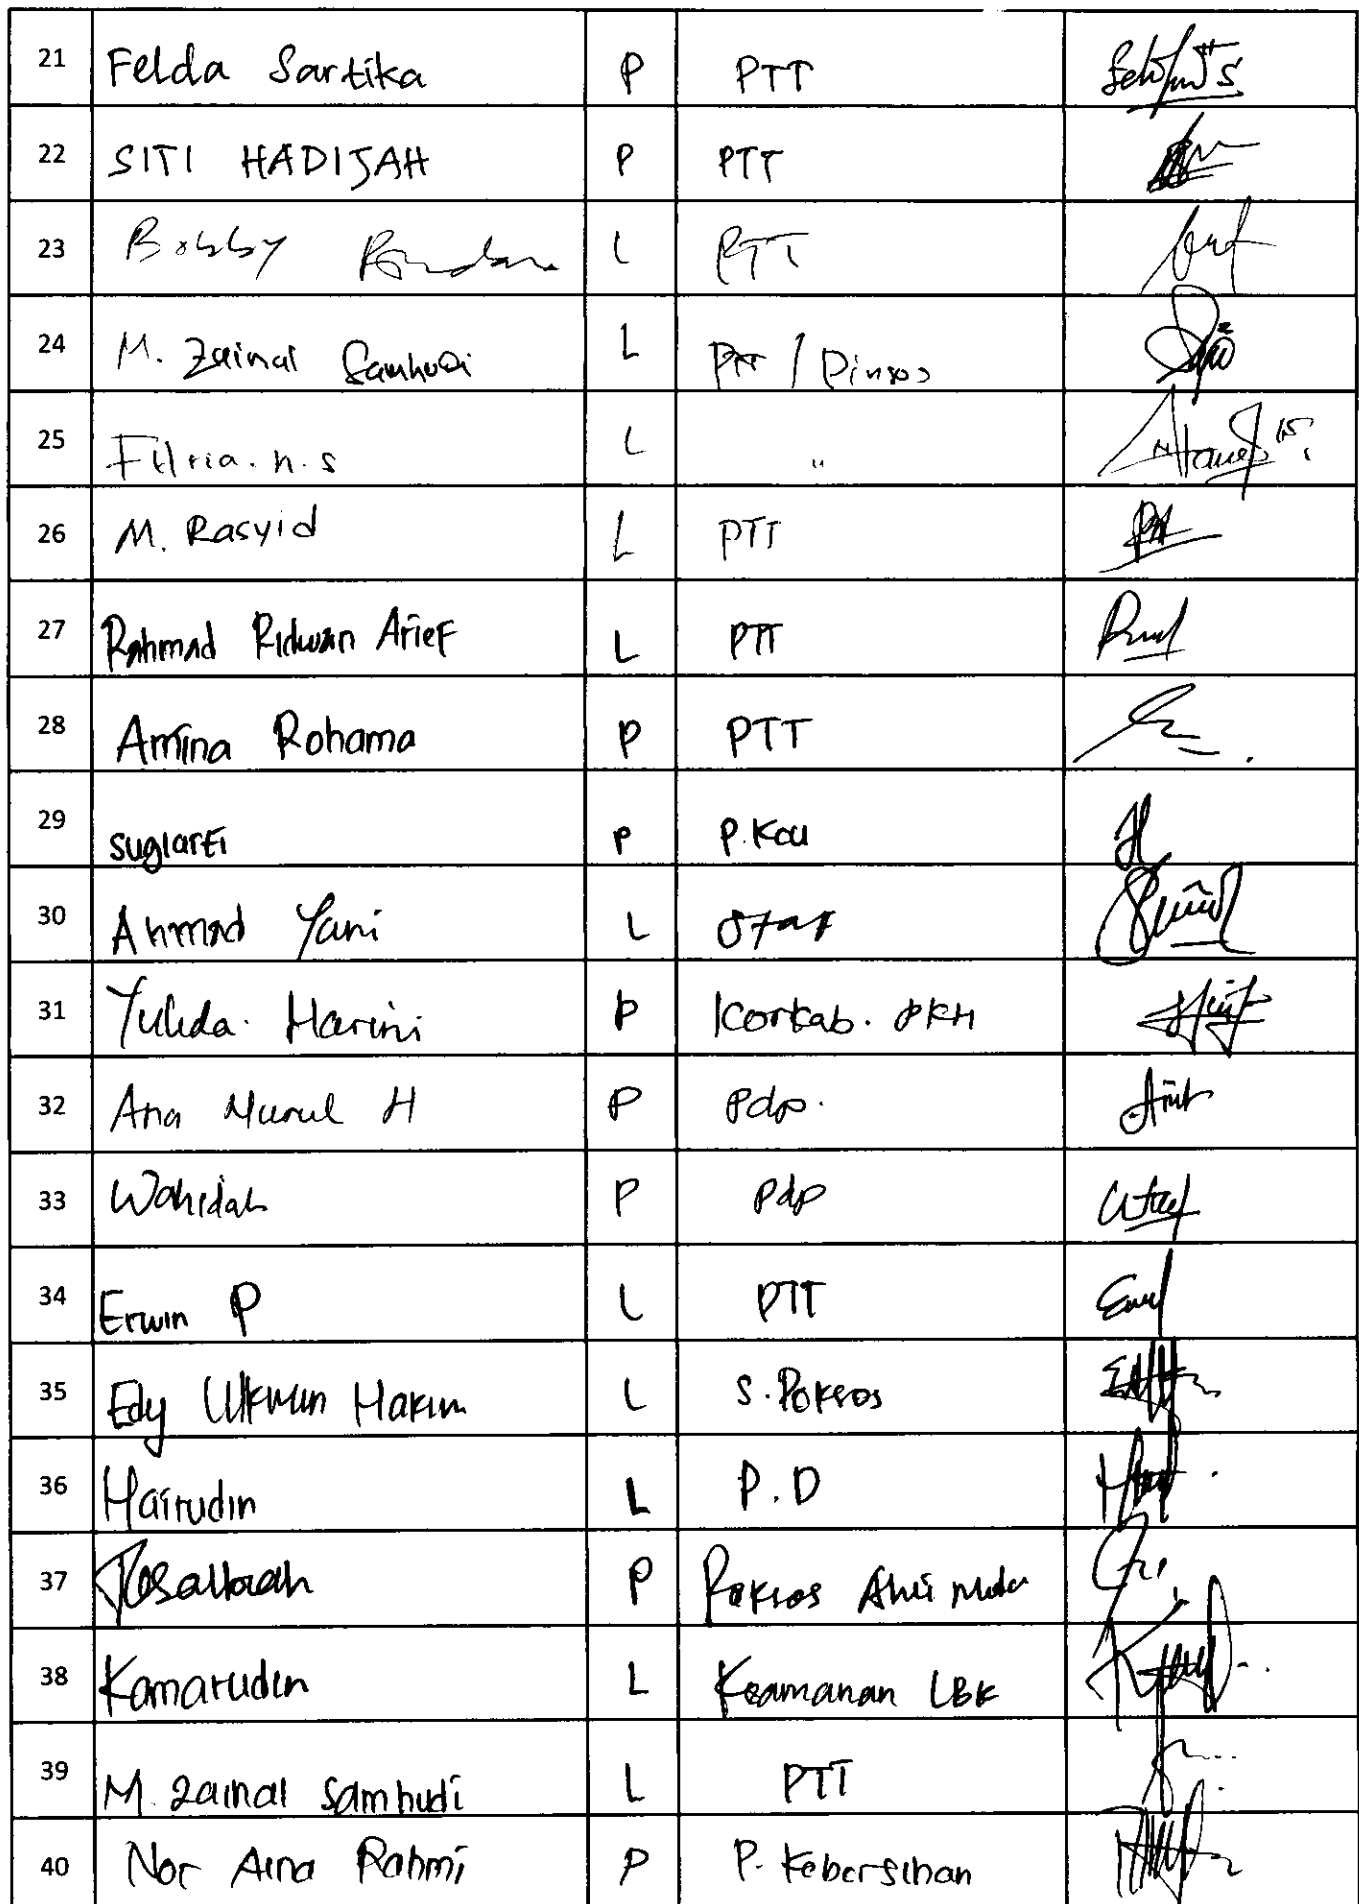 21 Felda Sartika P PTT
22 SITI HADIJAH P PTT
23 Bobby L PTT
24 M. Zainal Samhudi L PTT / Dinsos
25 Fitria. n. s L "
26 M. Rasyid L PTT
27 Rahmad Ridwan Arief L PTT
28 Amina Rohama P PTT
29 sugiarti P P.
30 Ahmad Yani L Staf
31 Yulida. Harini P Korkab. PKH
32 Ana Nurul H P Pdp.
33 Wahidah P Pdp
34 Erwin P L PTT
35 Edy Hakim L S. Poksos
36 Hairudin L P.D
37 P Peksos Ahli Muda
38 Kamarudin L Keamanan LBK
39 M. Zainal Samhudi L PTT
40 Nor Aina Rahmi P P. Kebersihan